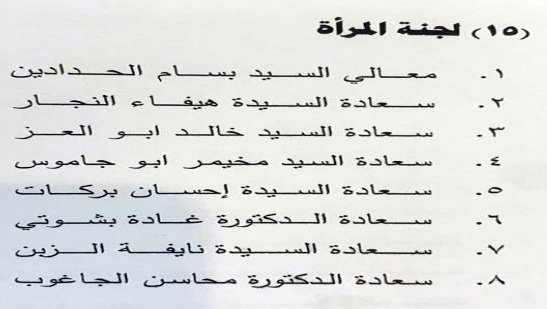 (١٥) لجنة المرأة
١. معالي السيد بسام الحدادين
٢. سعادة السيدة هيفاء النجار
٣. سعادة السيد خالد ابو العز
٤. سعادة السيد مخيمر ابو جاموس
٥. سعادة السيدة إحسان بركات
٦. سعادة الدكتورة غادة بشوتي
٧. سعادة السيدة نايفة الزبن
٨. سعادة الدكتورة محاسن الجاغوب